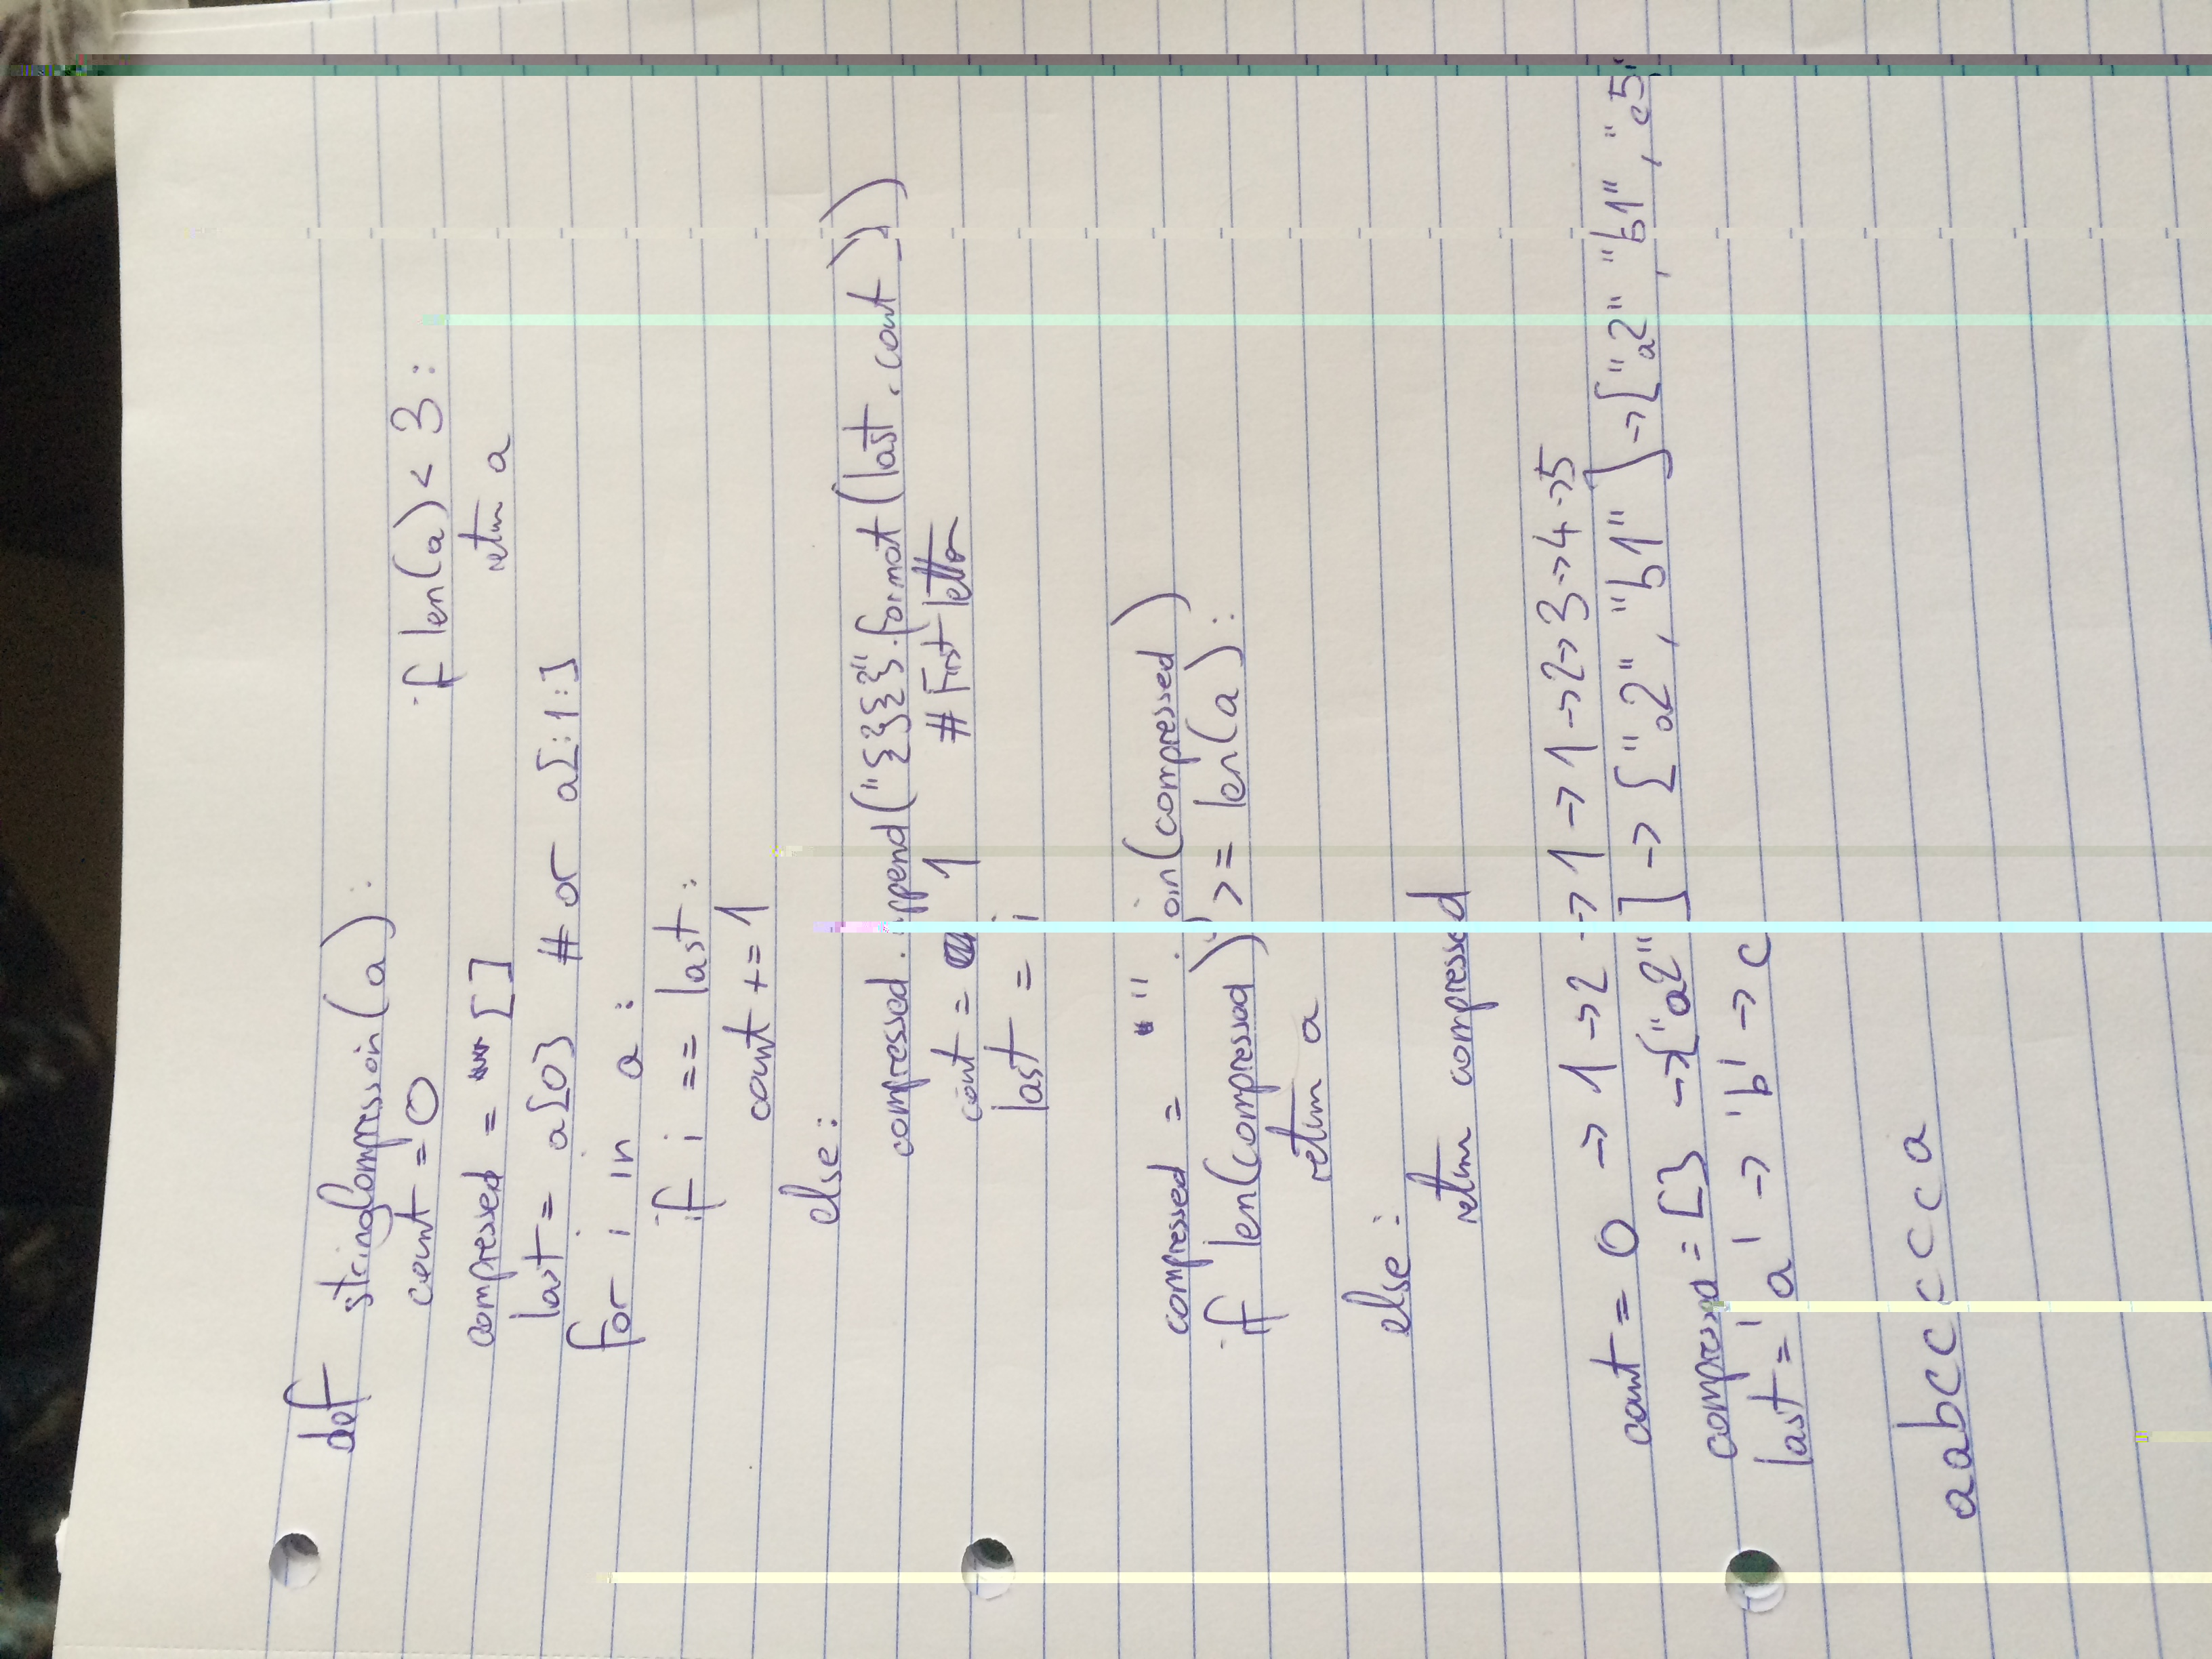 def stringCompression(a):
count = 0 if len(a) < 3:
return a
compressed = []
last = a[0] # or a[:1:]
for i in a:
if i == last:
count += 1
else:
compressed.append("{}{}".format(last, count))
count = 1 # First letter
last = i
compressed = "".join(compressed)
if len(compressed) >= len(a):
return a
else:
return compressed
count = 0 -> 1 -> 2 -> 1 -> 1 -> 2 -> 3 -> 4 -> 5
compressed = [] -> ["a2"] -> ["a2", "b1"] -> ["a2", "b1", "c5"
last = 'a' -> 'b' -> c
aabccccca